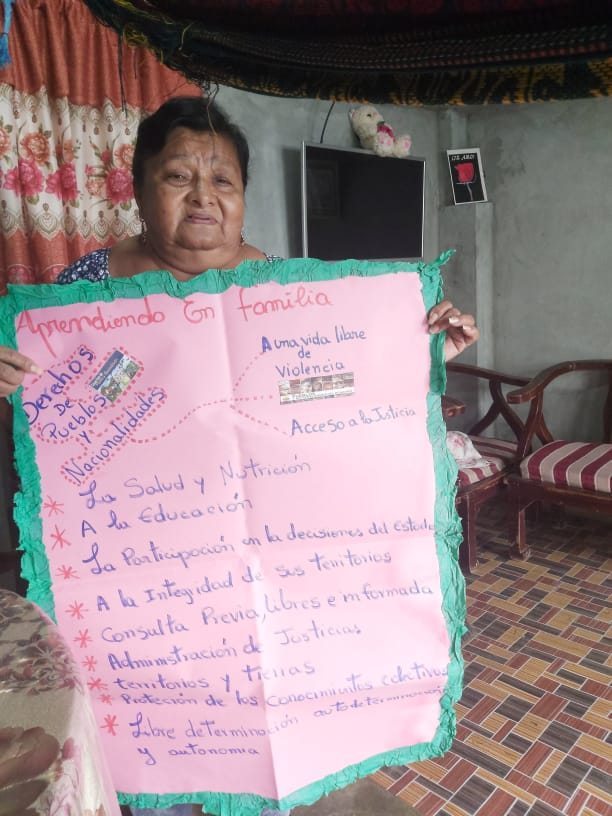 Aprendiendo En familia
Derehos
De
Pueblos
y
Nacionalidades
A una vida libre
de
Violencia
Acceso a la Justicia
* La Salud y Nutrición
* A la Educación
* La Participación en la decisiones del Estado
* A la Integridad de sus territorios
* Consulta Previa, libres e informada
* Administración de Justicias
* territorios y tierras
* Protección de los Conocimientos colectivos
* Libre determinación autodeterminación
y autonomia